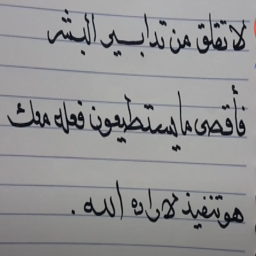 لا تقلق من تدابير البشر
فأقصى ما يستطيعون فعله معك
هو تنفيذ لاراده الله .